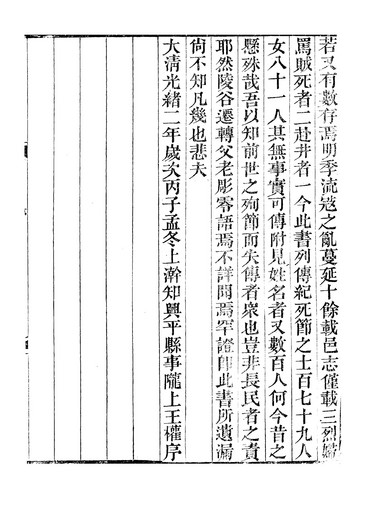 若又有數存焉明季流寇之亂蔓延十餘載邑志僅載三烈婦
罵賊死者二赴井者一今此書列傳紀死節之士百七十九人
女八十一人其無事實可傳附見姓名者又數百人何今昔之
懸殊哉吾以知前世之殉節而失傳者衆也豈非長民者之責
耶然陵谷遷轉父老彫零語焉不詳聞焉罕證卽此書所遺漏
尙不知凡幾也悲夫
大淸光緖二年歲次丙子孟冬上澣知興平縣事隴上王權序